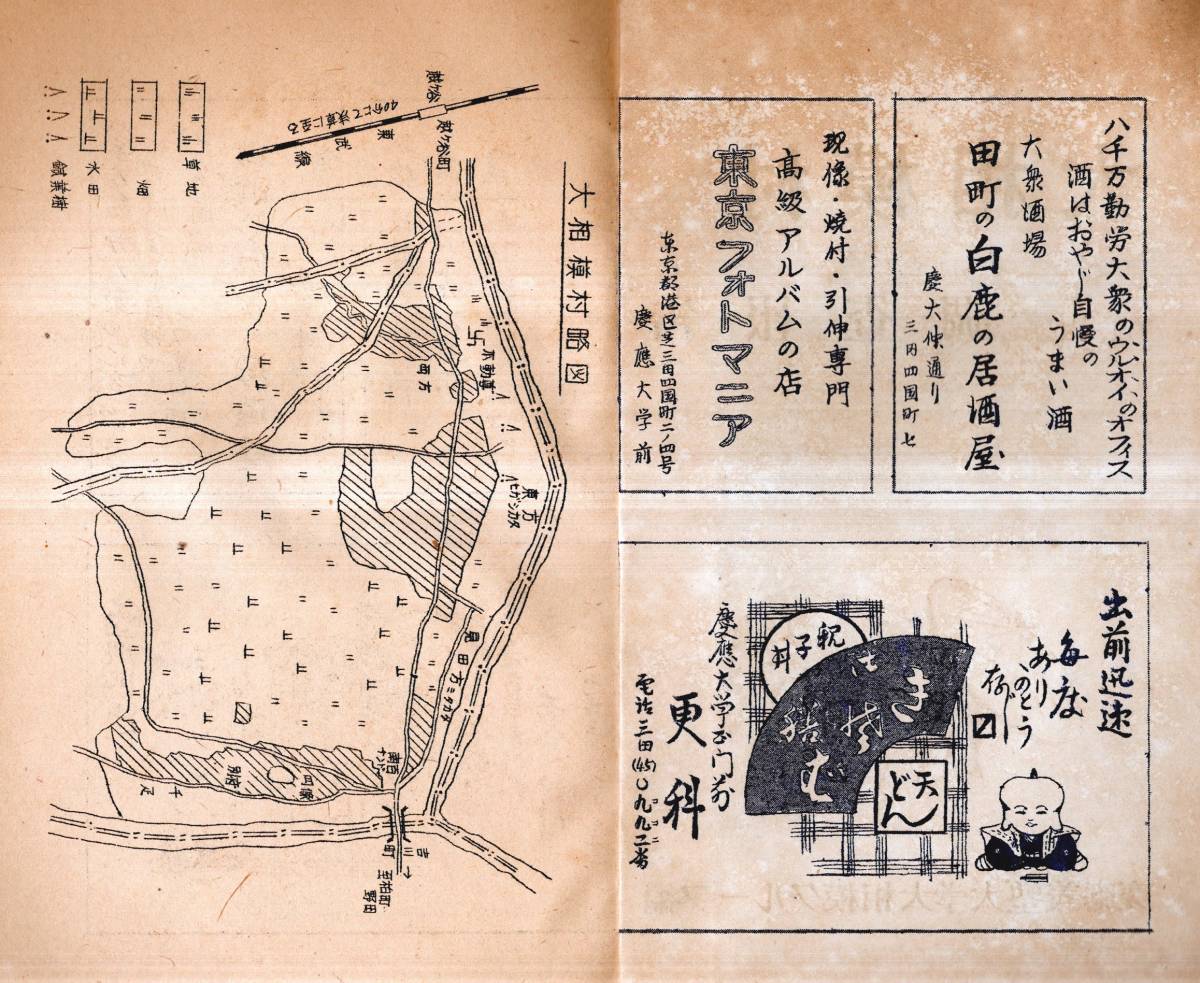 八千万勤労大衆のウルオイのオフィス
酒はおやじ自慢の
うまい酒
大衆酒場
田町の白鹿の居酒屋
慶大仲通り
三田四国町七
現像・焼付・引伸専門
高級アルバムの店
東京フォトマニア
東京都港区芝三田四国町二ノ四号
慶應大学前
出前迅速
毎度
ありがとう
存じ〼
親子丼
天どん
慶應大学正門前
更科
電話三田(45)〇九九二番
大相模村略図
越ヶ谷
越ヶ谷町
東武線
40分にて浅草に至る
草地
畑
水田
針葉樹
不動尊
西方
東方
ヒガシカタ
見田方ミタカタ
南百
四条
別府
千疋
吉川町
至柏町
野田